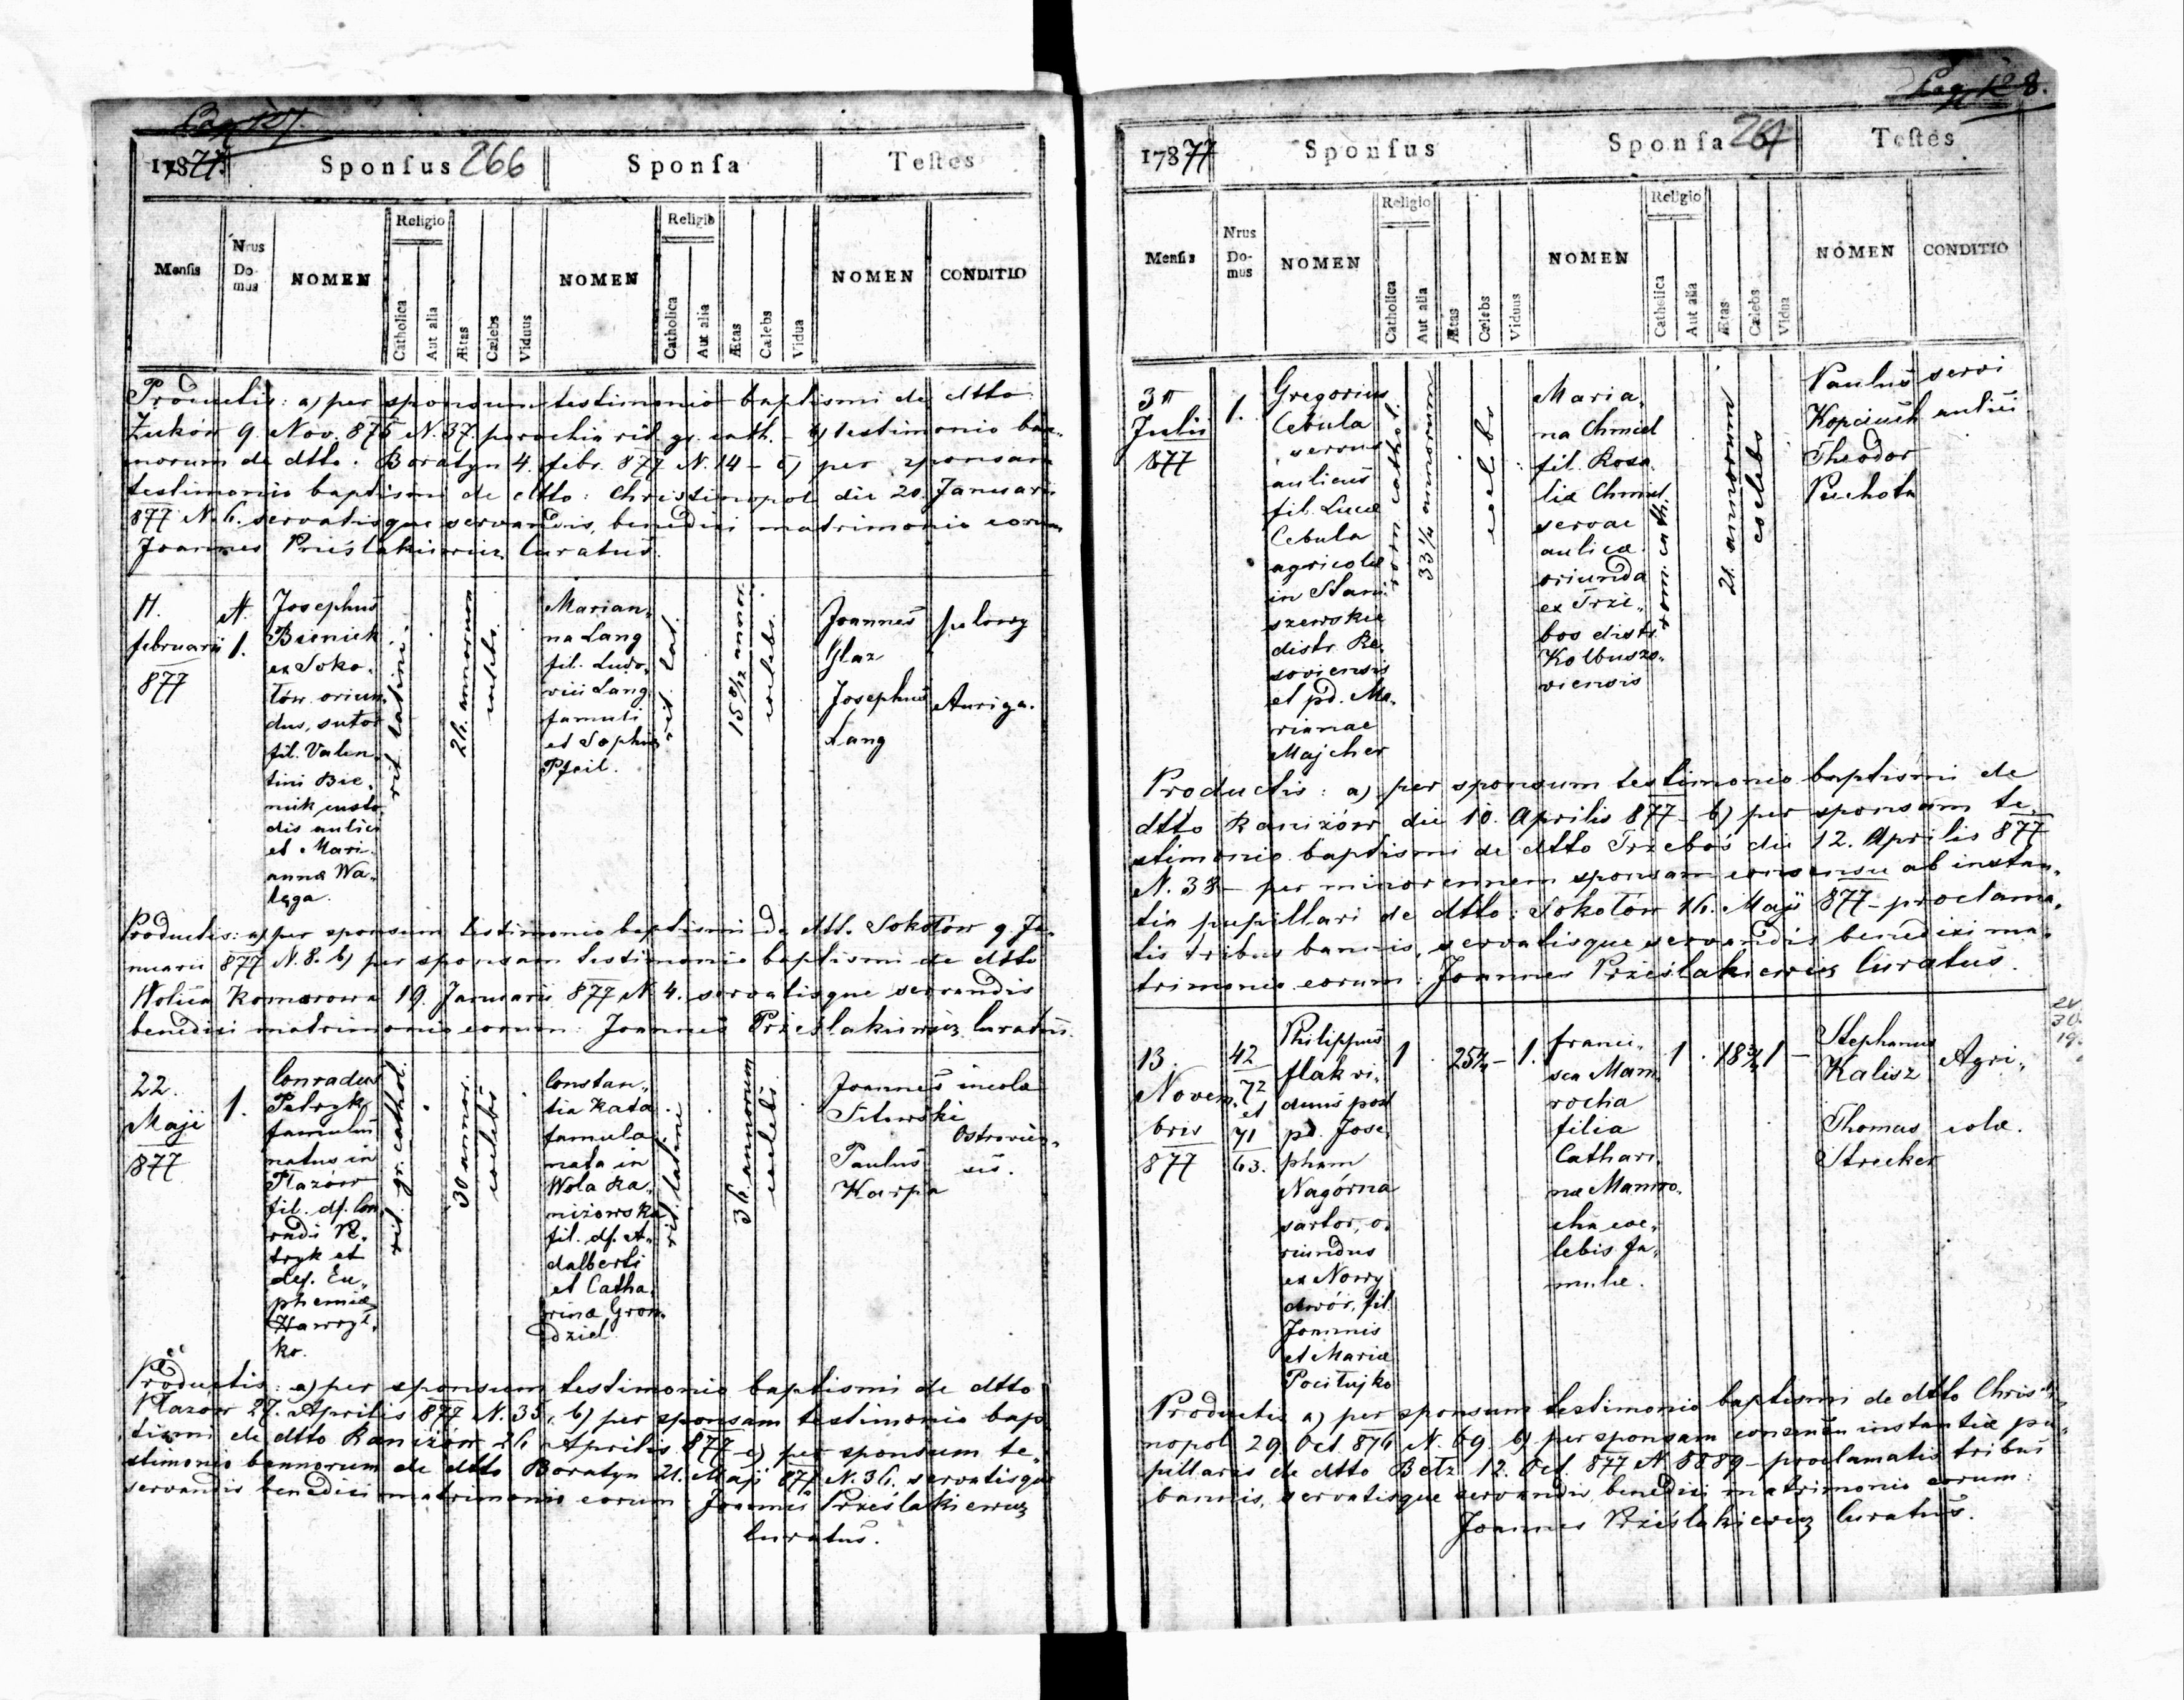 Pag 127.
17877. Sponſus 266 Sponſa Teſtes
Menſis Nrus Domus NOMEN Religio Catholica Aut alia Ætas Cælebs Viduus NOMEN Religio Catholica Aut alia Ætas Cælebs Vidua NOMEN CONDITIO
Productis: a) per sponsum testimonio baptismi de dtto
Żuków 9. Nov. 876 N. 37. parochia rit. gr. cath. - b) testimonio ban„
norum de dtto. Boratyn 4. febr. 877 N. 14 - c) per sponsam
testimonio baptismi de dtto: Christinopol die 20. Januarii
877 N. 6. servatisque servandis, benedixi matrimonio eorum
Joannes Prześlakiewicz Curatus.
11.
februarii
877
N.
1.
Josephus
Bieniek
ex Soko„
łów oriun
dus, sutor
fil. Valen„
tini Bie„
niek custo
dis aulici
et Mari„
anna Wa„
łęga.
rit. latini
26. annorum
coelebs.
Marian„
na Lang
fil. Ludo„
vici Lang
famuli
et Sophia
Pfeil.
rit. lat.
15 8/12 annor.
coelebs.
Joannes
Głaz
Josephus
Lang
polowy
Auriga.
Productis: a) per sponsum testimonio baptismi de dtt. Sokołów 9. Ja„
nuarii 877 N. 8. b) per sponsam testimonio baptismi de dtto
Wolica Komarowa 19. Januarii 877 N. 4. servatisque servandis
benedixi matrimonio eorum: Joannes Prześlakiewicz Curatus.
22.
Maji
877
1.
Conradus
Petryk
famulus
natus in
Płazów
fil. df. Con
radi Pe„
tryk et
def. Eu„
phemiæ
Hawrył„
ko.
rit. gr. cathol.
30 annor.
coelebs
Constan„
tia Kata
famula
nata in
Wola Ra„
niżowska
fil. df. A„
dalberti
et Catha„
rinæ Gron„
dziel
rit. latine
36. annorum
coelebs.
Joannes
Sitewski
Paulus
Karpa
incolæ
Ostrovien„
sis.
Productis: a) per sponsum testimonio baptismi de dtto
Płazów 27. Aprilis 877 N. 35, b) per sponsam testimonio bap„
tismi de dtto Raniżów 26 Aprilis 877 c) per sponsum te„
stimonio bannorum de dtto Boratyn 21. Maji 877 N. 36. servatisque
servandis benedixi matrimonio eorum Joannes Prześlakiewicz
Curatus.
Pag 128.
17877 Sponſus Sponſa 267 Teſtes
Menſis Nrus Domus NOMEN Religio Catholica Aut alia Ætas Cælebs Viduus NOMEN Religio Catholica Aut alia Ætas Cælebs Vidua NOMEN CONDITIO
Julii
877
1.
Gregorius
Cebula
servus
aulicus
fil. Lucæ
Cebula
agricolæ
in Stani„
szewskie
distr. Re„
soviensis
et pd. Ma„
rianae
Majcher
rom cathol.
33 1/4 annorum
coelebs
Maria„
na Chmiel
fil. Rosa„
liæ Chmiel
servae
aulicæ
oriunda
ex Trze„
boś distr.
Kolbuszo„
viensis
rom. cath.
21. annorum
coelebs
Paulus
Kopciuch
Theodor
Puchota
servi
aulici
Productis: a) per sponsum testimonio baptismi de
dtto Raniżów die 10. Aprilis 877 - b) per sponsam te„
stimonio baptismi de dtto Trzeboś die 12. Aprilis 877
N. 38 - per minorennem sponsam consensu ab instan„
tia pupillari de dtto: Sokołów 16. Maji 877 - proclama„
tis tribus bannis, servatisque servandis benedixi ma„
trimonio eorum: Joannes Prześlakiewicz Curatus.
13.
Novem„
bris
877
42
72
et
71
63.
Philippus
flak vi„
duus post
pd. Jose„
pham
Nagórna
sartor, o„
riundus
ex Nowy
dwór, fil.
Joannis
et Mariæ
Pociłujko
1 25 - 1.
Franci„
sca Mam„
rocha
filia
Cathari„
næ Mamro„
cha coe„
lebis fa„
mulæ.
1. 18 3/4 1 -
Stephanus
Kalisz
Thomas
Strecker
Agri„
colæ.
24
30.
19.
Productis a) per sponsum testimonio baptismi de dtto Christi„
nopol 29. Oct. 876 N. 69 b) per sponsam consensu instantiæ pu„
pillaris de dtto Bełz 12. Oct. 877 N 8889 - proclamatis tribus
bannis, servatisque servandis, benedixi matrimonio eorum:
Joannes Prześlakiewicz Curatus.